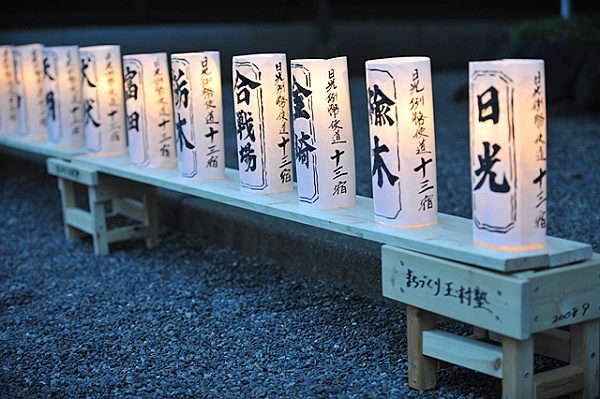 日光
日光例幣使道十三宿
楡木
日光例幣使道十三宿
金崎
日光例幣使道十三宿
合戦場
日光例幣使道十三宿
栃木
日光例幣使道十三宿
富田
日光例幣使道十三宿
犬伏
天明
まちづくり玉村塾
2008.9